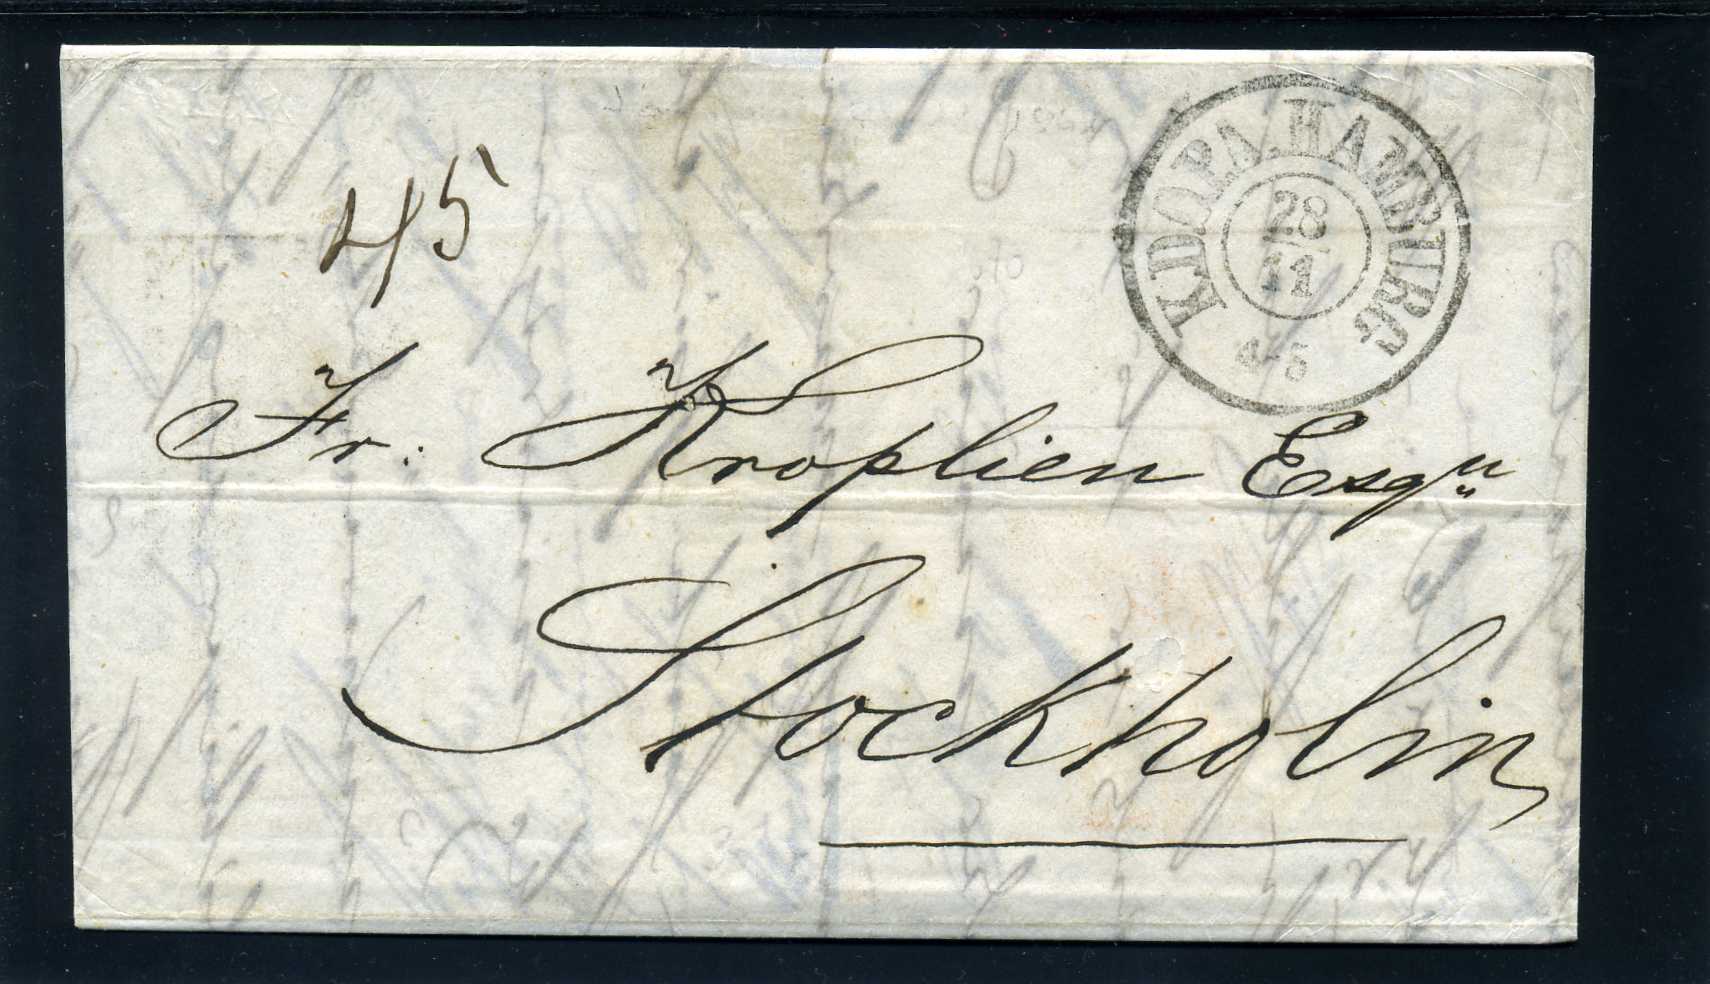 45
K.D.O.P.A. HAMBURG
28
11
4-5
Fr: Kroplien Esqu
Stockholm